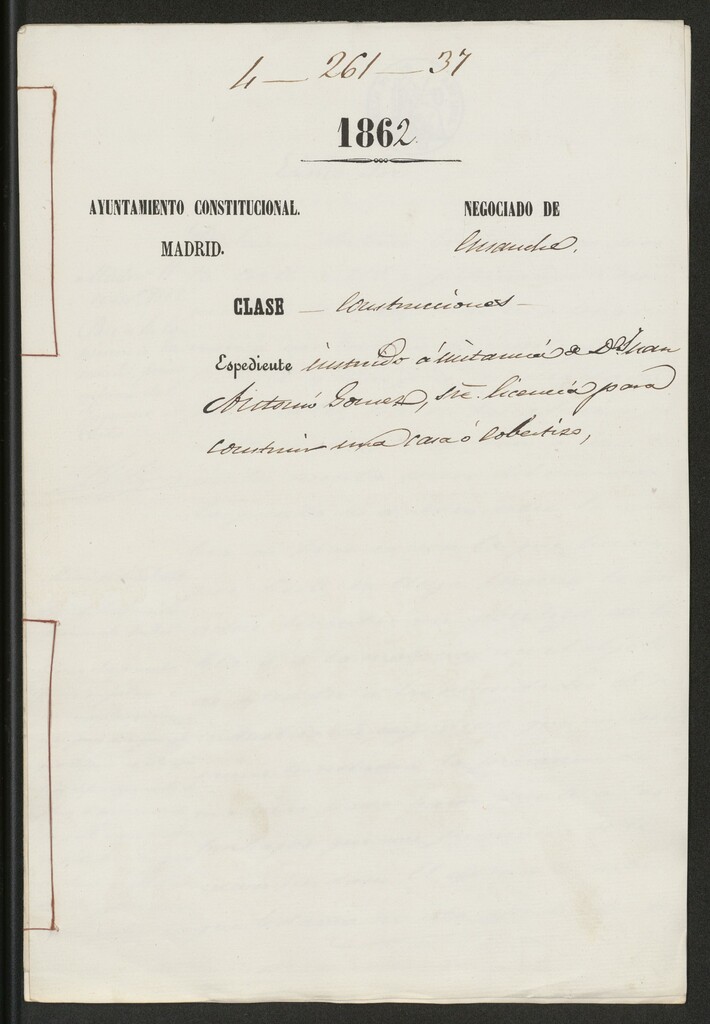 4 — 261 — 37
1862
AYUNTAMIENTO CONSTITUCIONAL.
MADRID.
NEGOCIADO DE
Ensanche.
CLASE — Construcciones —
Espediente instruido á instancia de Dn. Juan
Antonio Gomez, sre. licencia para
construir una casa ó cobertizo,